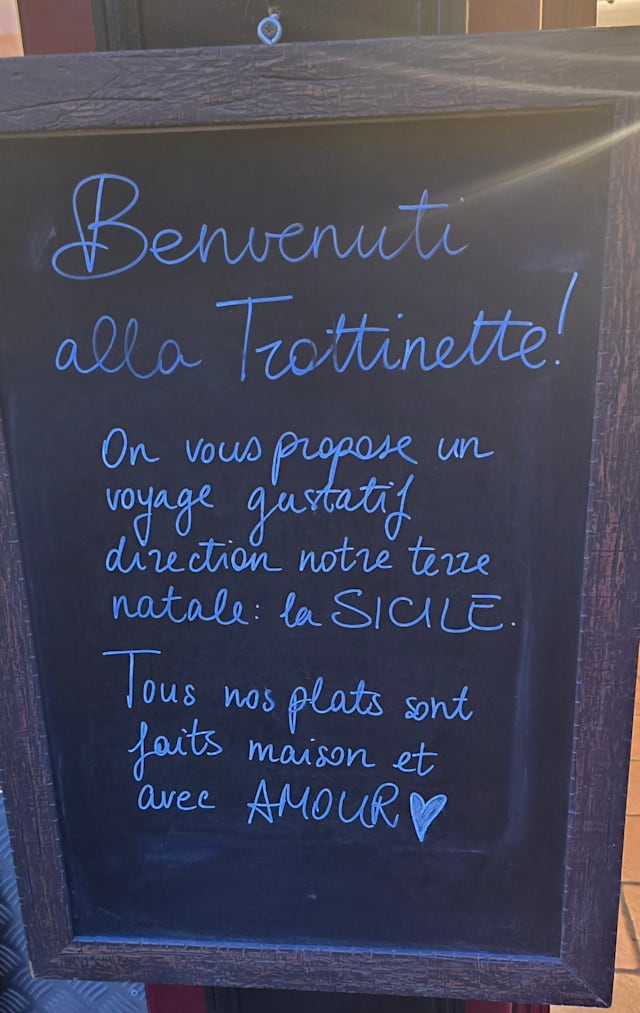 Benvenuti
alla Trottinette!
On vous propose un
voyage gustatif
direction notre terre
natale: la SICILE.
Tous nos plats sont
faits maison et
avec AMOUR♥